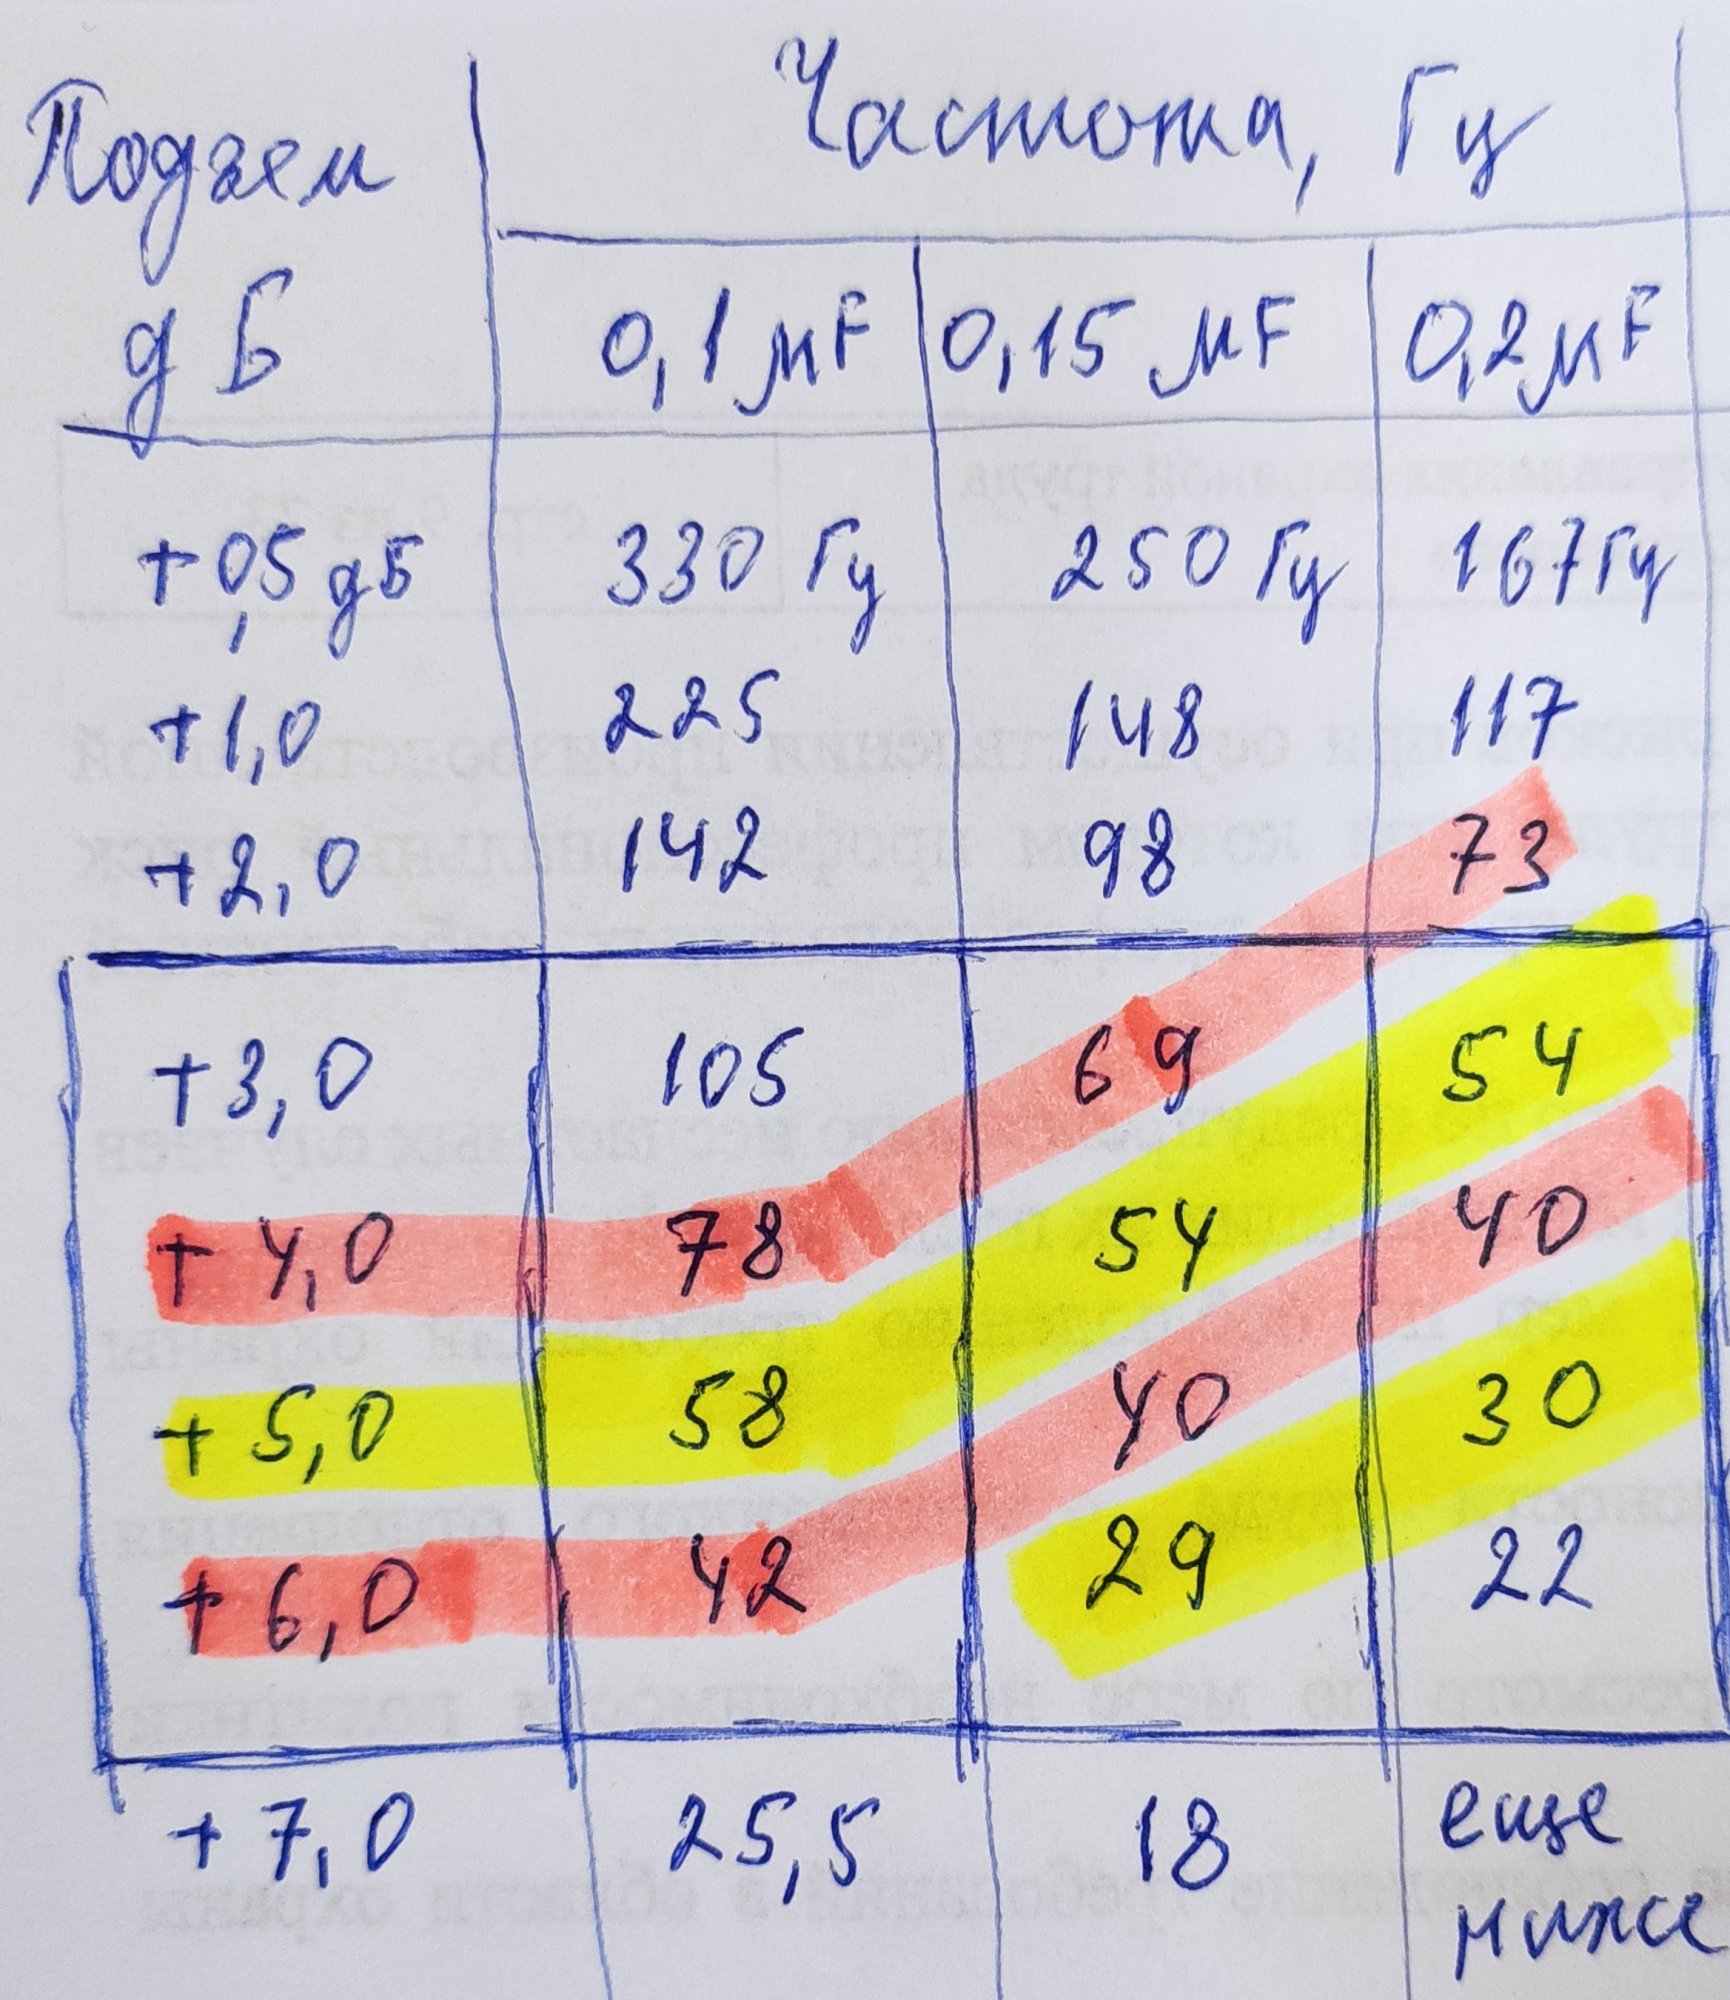 Подъем
дБ
Частота, Гц
0,1 мF 0,15 мF 0,2 мF
+0,5 дБ 330 Гц 250 Гц 167 Гц
+1,0 225 148 117
+2,0 142 98 73
+3,0 105 69 54
+4,0 78 54 40
+5,0 58 40 30
+6,0 42 29 22
+7,0 25,5 18 еще
ниже